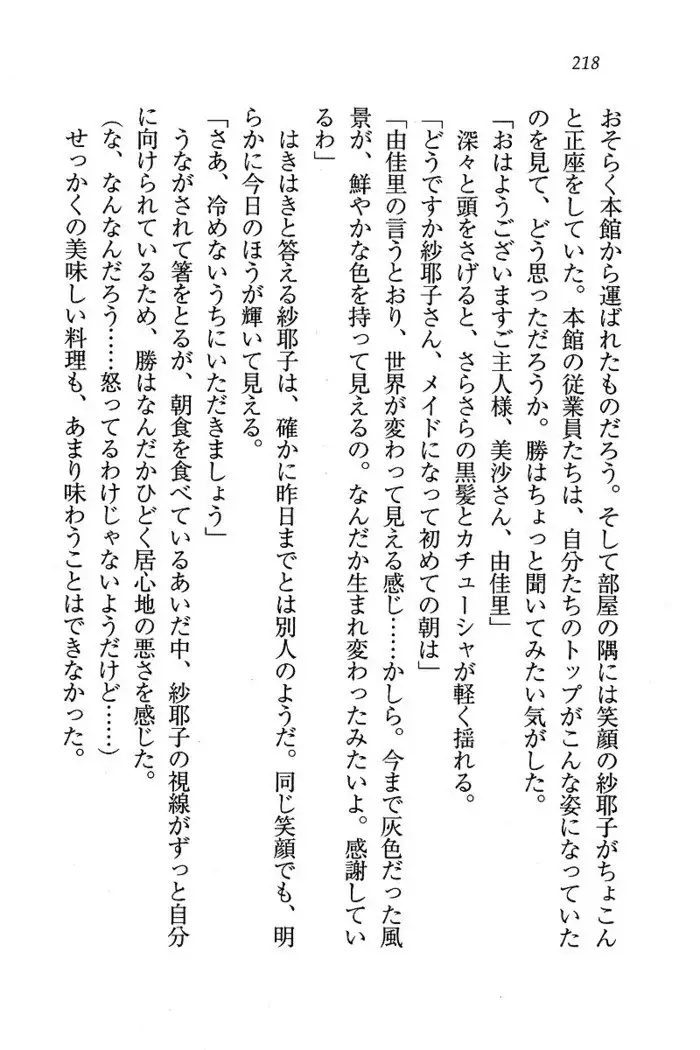 218
おそらく本館から運ばれたものだろう。そして部屋の隅には笑顔の紗耶子がちょこん
と正座をしていた。本館の従業員たちは、自分たちのトップがこんな姿になっていた
のを見て、どう思っただろうか。勝はちょっと聞いてみたい気がした。
「おはようございますご主人様、美沙さん、由佳里」
深々と頭をさげると、さらさらの黒髪とカチューシャが軽く揺れる。
「どうですか紗耶子さん、メイドになって初めての朝は」
「由佳里の言うとおり、世界が変わって見える感じ……かしら。今まで灰色だった風
景が、鮮やかな色を持って見えるの。なんだか生まれ変わったみたいよ。感謝してい
るわ」
はきはきと答える紗耶子は、確かに昨日までとは別人のようだ。同じ笑顔でも、明
らかに今日のほうが輝いて見える。
「さあ、冷めないうちにいただきましょう」
うながされて箸をとるが、朝食を食べているあいだ中、紗耶子の視線がずっと自分
に向けられているため、勝はなんだかひどく居心地の悪さを感じた。
（な、なんなんだろう……怒ってるわけじゃないようだけど……）
せっかくの美味しい料理も、あまり味わうことはできなかった。